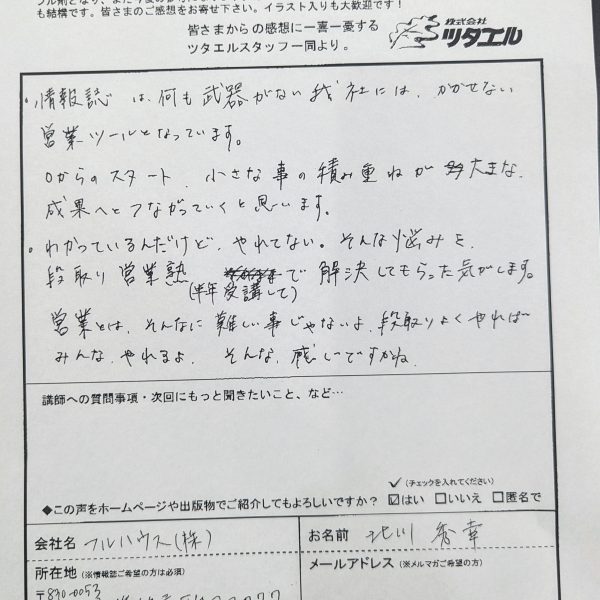 も結構です。皆さまのご感想をお寄せ下さい。イラスト入りも大歓迎です！
皆さまからの感想に一喜一憂する
ツタエルスタッフ一同より。
株式会社
ツタエル
・情報誌は、何も武器がない我社には、かかせない
営業ツールとなっています。
0からのスタート、小さな事の積み重ねが大きな、
成果へとつながっていくと思います。
・わかっているんだけど、やれてない。そんな悩みを、
段取り営業熟で解決してもらった気がします。
(半年受講して)
営業とは、そんなに難しい事じゃないよ、段取りよくやれば
みんな、やれるよ、そんな、感じですかね
講師への質問事項・次回にもっと聞きたいこと、など…
(チェックを入れてください)
◆この声をホームページや出版物でご紹介してもよろしいですか？ ☑はい □いいえ □匿名で
会社名 フルハウス(株) お名前 北川 秀幸
所在地 (※情報誌ご希望の方は必須) メールアドレス (※メルマガご希望の方)
〒830-0053